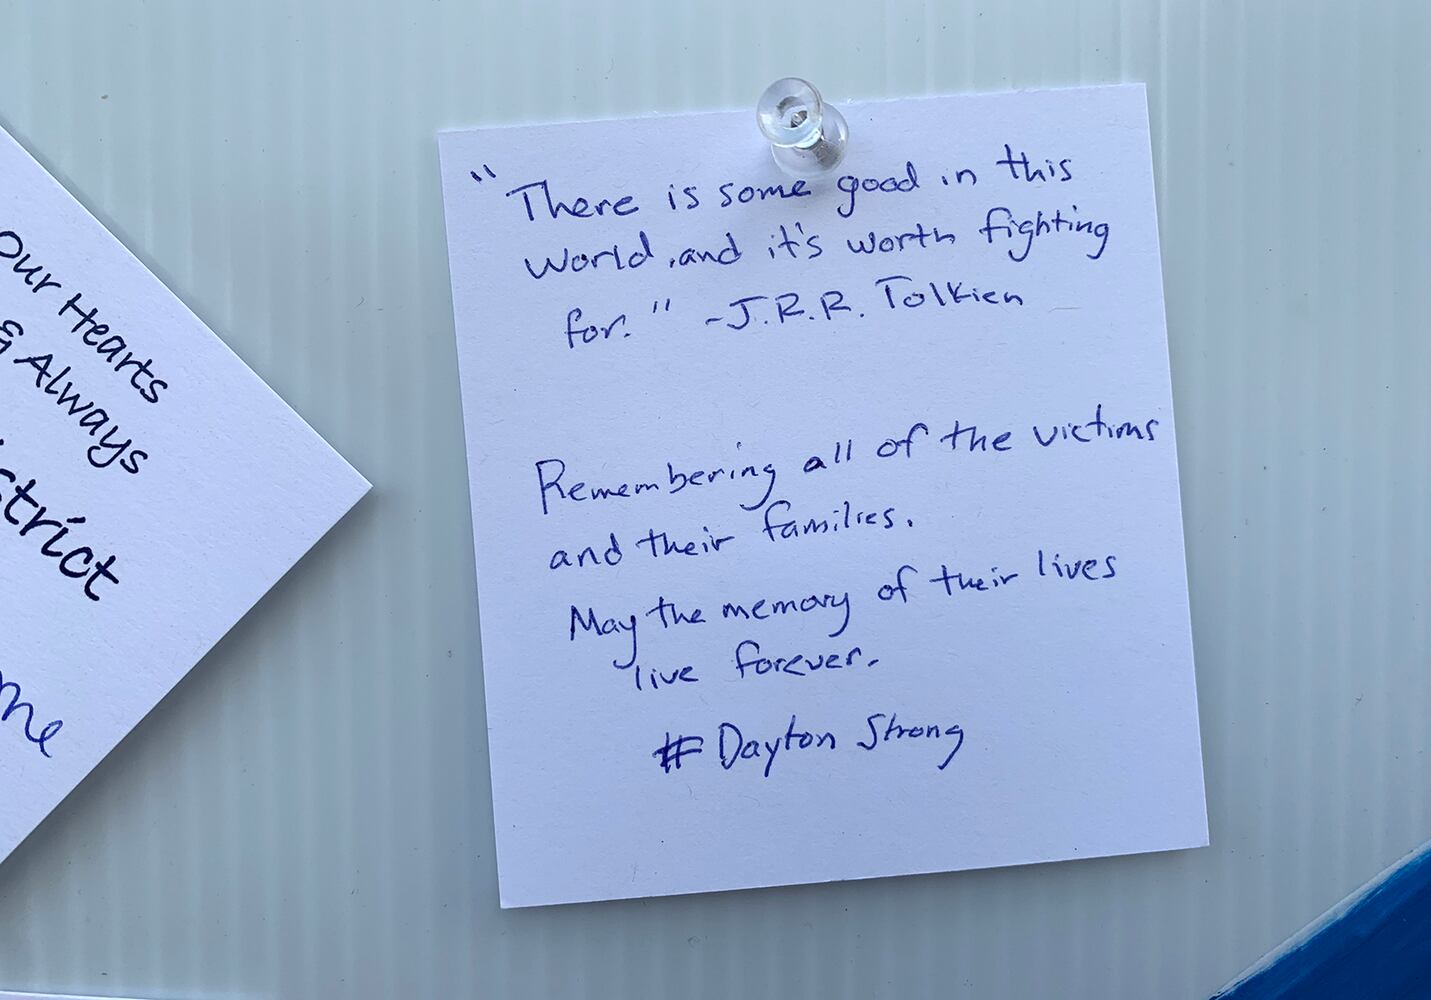 Our Hearts
& Always
strict
me
"There is some good in this
World, and it's worth fighting
for." - J.R.R. Tolkien
Remembering all of the victims
and their families.
May the memory of their lives
live forever.
# Dayton Strong